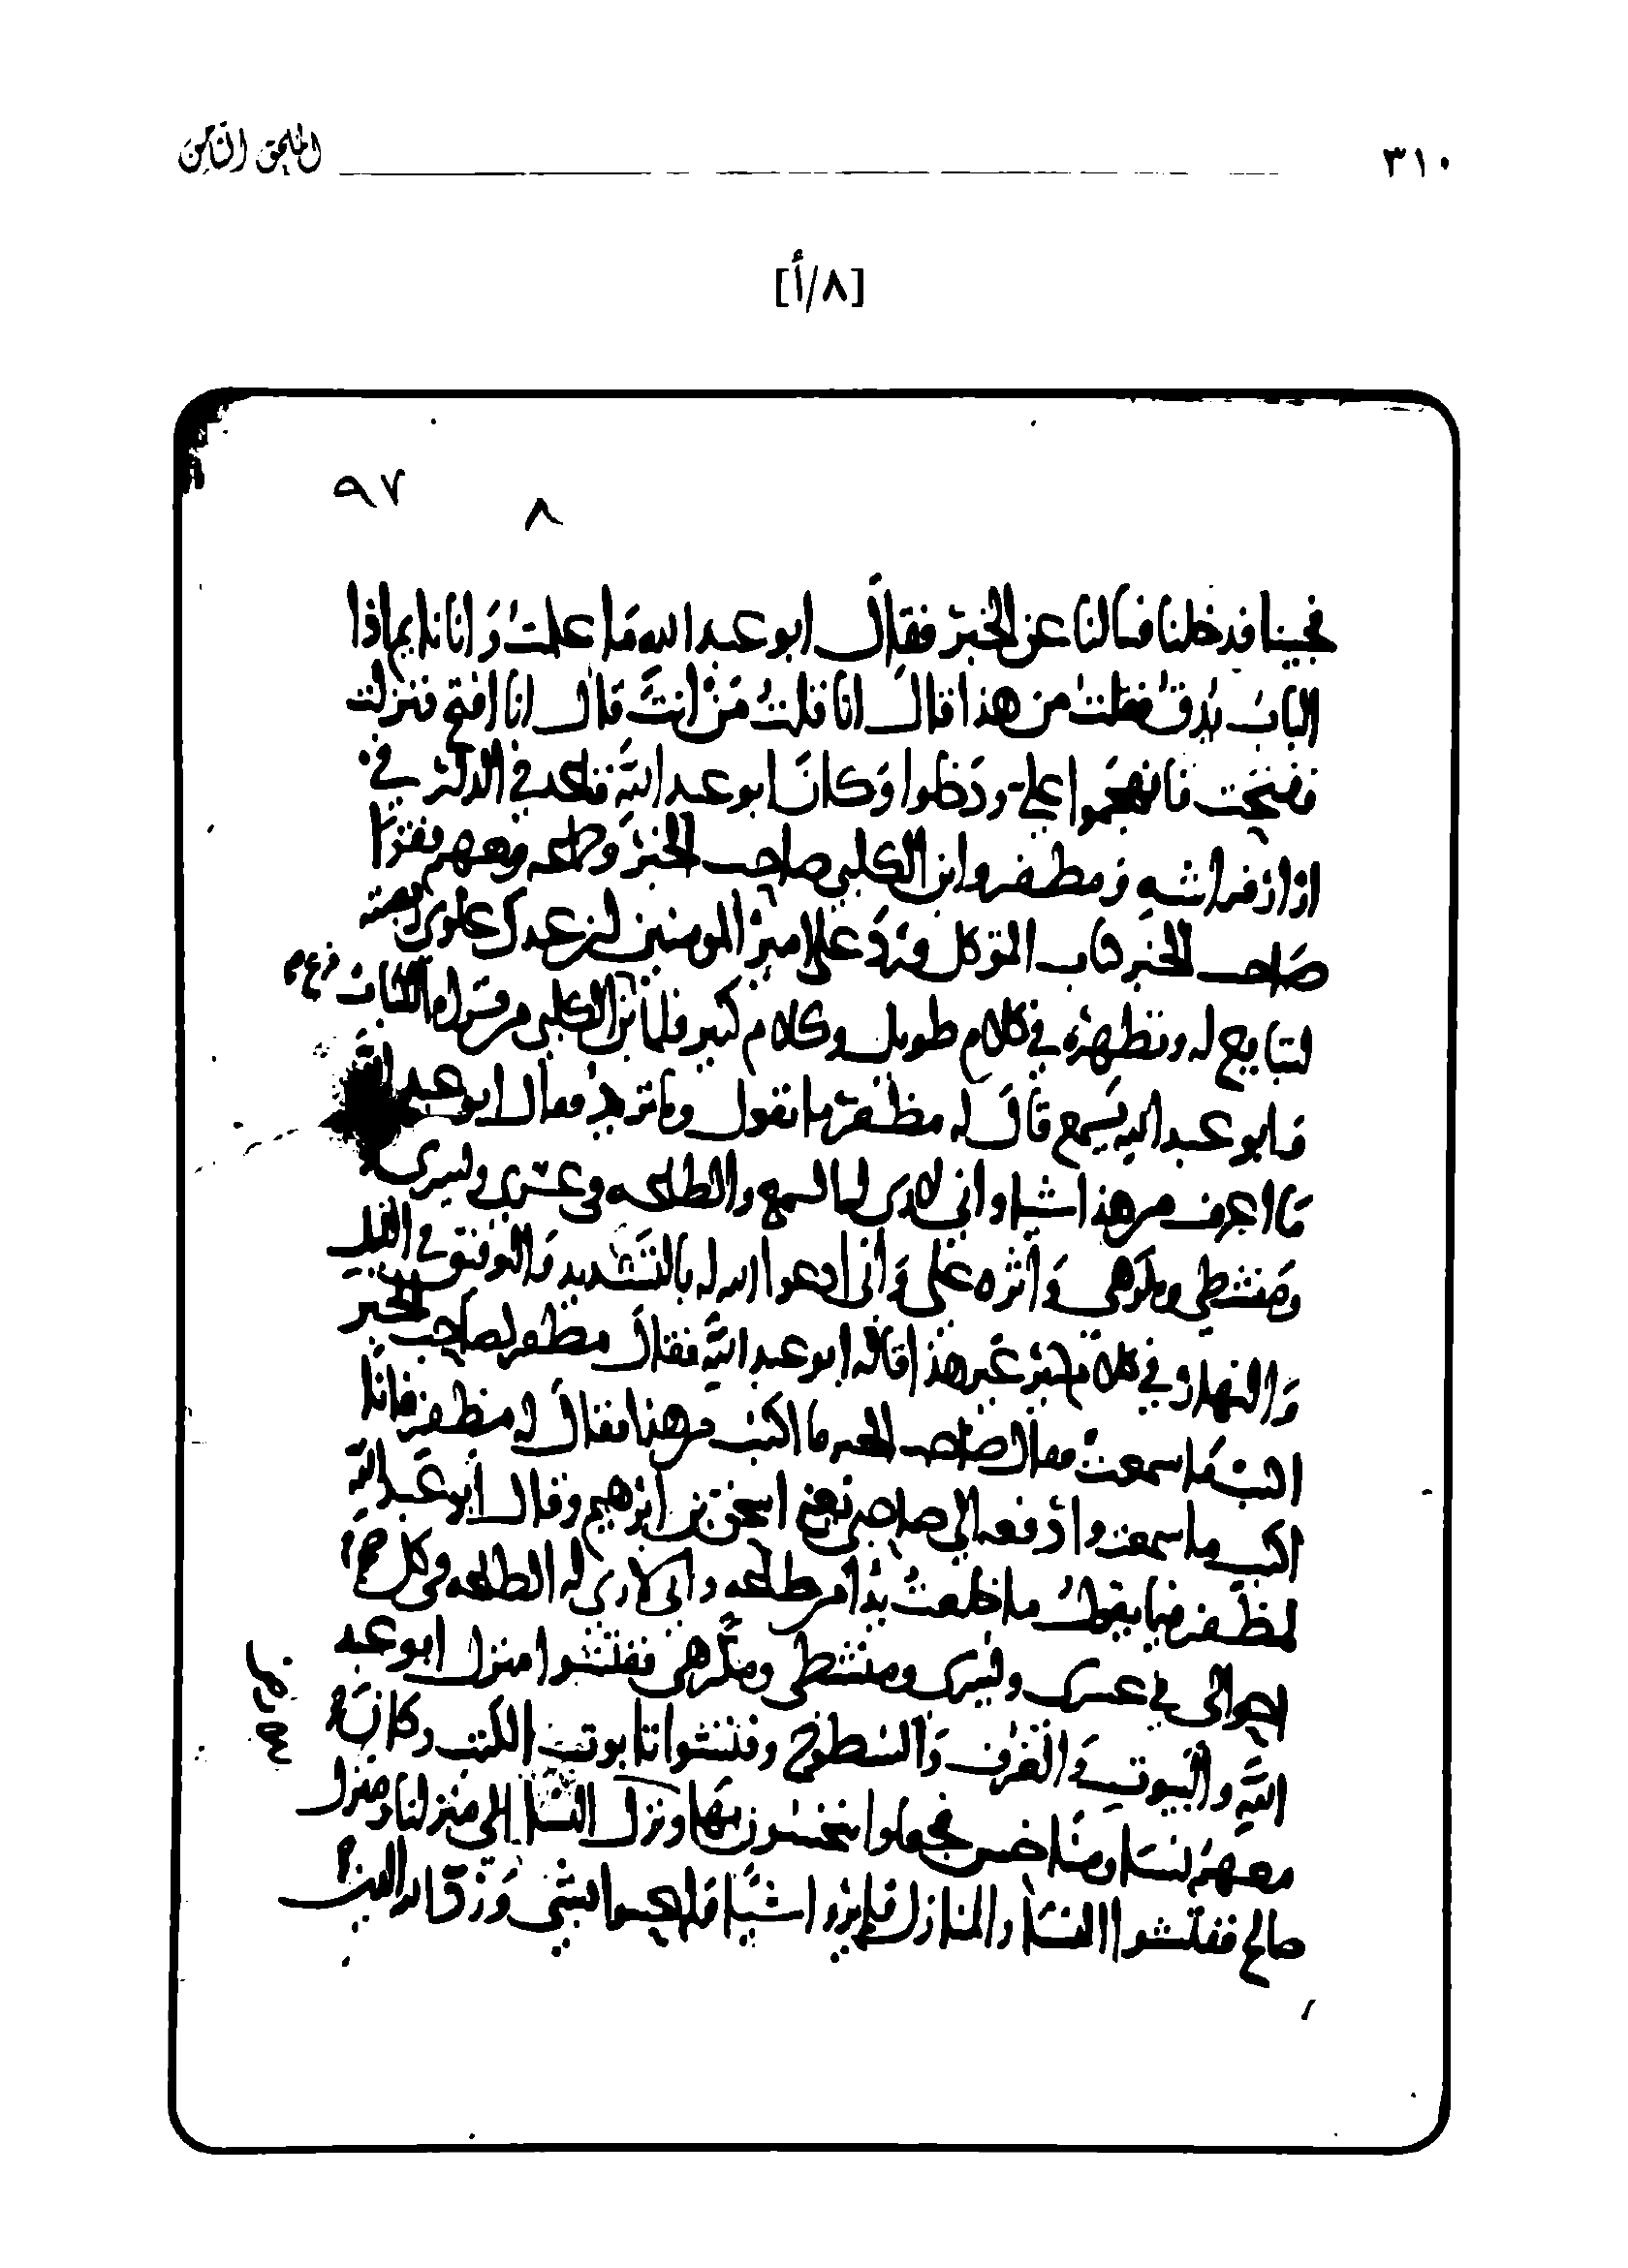 ٣١٠
الملحق الثامن
[٨/أ]
٩٧
٨
فجينا فدخلنا فسالنا عن الخبر فقال ابو عبد الله ما علمت وانا نايم اذا
الباب يدق فقلت من هذا قال انا قلت من انت قال انا افتح فنزلت
ففتحت فانهجموا علي ودخلوا وكان ابو عبد الله قاعد في الدار في
ازار فراشه ومظفر وابن الكلبي صاحب الخبر وجماعه معهم فقرا
صاحب الخبر كتاب المتوكل ورد على امير المومنين ان عندك علوي
لتبايع له وتظهره في كلام طويل وكلام كثير فلما ابن الكلبي من قراه الكتاب
وابو عبد الله يسمع قال له مظفر ما تقول وما ترد فقال ابو عبد الله
ما اعرف من هذا شيا واني لارى له السمع والطاعه في عسرى ويسرى
ومنشطي ومكرهي واثره علي واني ادعوا الله له بالتسديد والتوفيق في الليل
والنهار في كلام كثير غير هذا قاله ابو عبد الله فقال مظفر لصاحب الخبر
اكتب ما سمعت فقال صاحب الخبر ما اكتب من هنا فقال له مظفر
اكتب ما سمعت وادفعه الى صاحبي يعني اسحق بن ابرهيم وقال ابو عبد الله
لمظفر فيما يقول ما خلعت يدا من طاعه واني لارى له الطاعه في كل
احوالي في عسرى ويسرى ومنشطي ومكرهي ففتشوا منزل ابو عبد
الله والبيوت والغرف والسطوح وفتشوا تابوت الكتب وكان
معهم نسا ومخاحس فجعلوا يتحسسون بها ونزل النسا الى منزلنا ومنزل
صالح ففتشوا النسا والمنازل فلم يروا شيا فلم يحسوا بشي